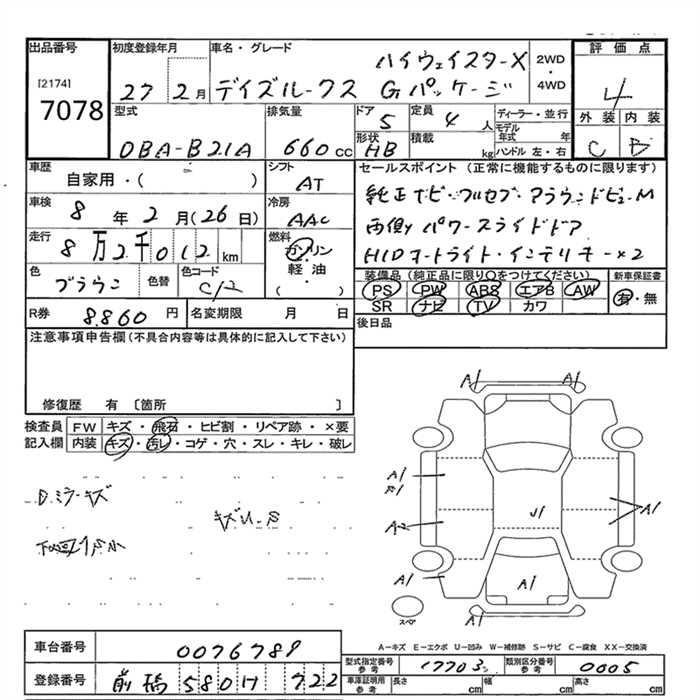 出品番号
[2174]
7078
初度登録年月
27 2月
車名・グレード
ハイウェイスターX
デイズルークス Gパッケージ
2WD
・
4WD
評価点
4
外装 内装
C B
型式
DBA-B21A
排気量
660cc
ドア
5
定員
4人
ディーラー・並行
モデル
年式 年
ハンドル 左・右
形状
HB
積載
kg
車歴
自家用・( )
シフト
AT
車検
8年2月(26日)
冷房
AAC
走行
8万2千012km
燃料
ガソリン
軽・油
( )
色
ブラウン
色替
色コード
C/2
R券
8.860円
名変期限 月 日
セールスポイント (正常に機能するものに限ります)
純正ナビ・フルセグ・アラウンドビューM
両側パワースライドドア
HIDオートライト・インテリキー×2
装備品(純正品に限り○をつけてください)
新車保証書
PS PW ABS エアB AW
SR ナビ TV カワ
有・無
後日品
注意事項申告欄(不具合内容等は具体的に記入して下さい)
修復歴 有 〔箇所 〕
検査員
記入欄
FW キズ・飛石・ヒビ割・リペア跡・×要
内装 キズ・汚レ・コゲ・穴・スレ・キレ・破レ
Dミラーキズ
キズU-P
A1 A1
A1
A1
A2
U1
A1
A1
A1
スペア
A1
A-キズ E-エクボ U-凹み W-補修跡 S-サビ C-腐食 XX-交換済
車台番号
0076789
登録番号
前橋 580 722
型式指定番号
参考
17703
類別区分番号
参考
0005
車庫証明用
参考
長さ cm
幅 cm
高さ cm